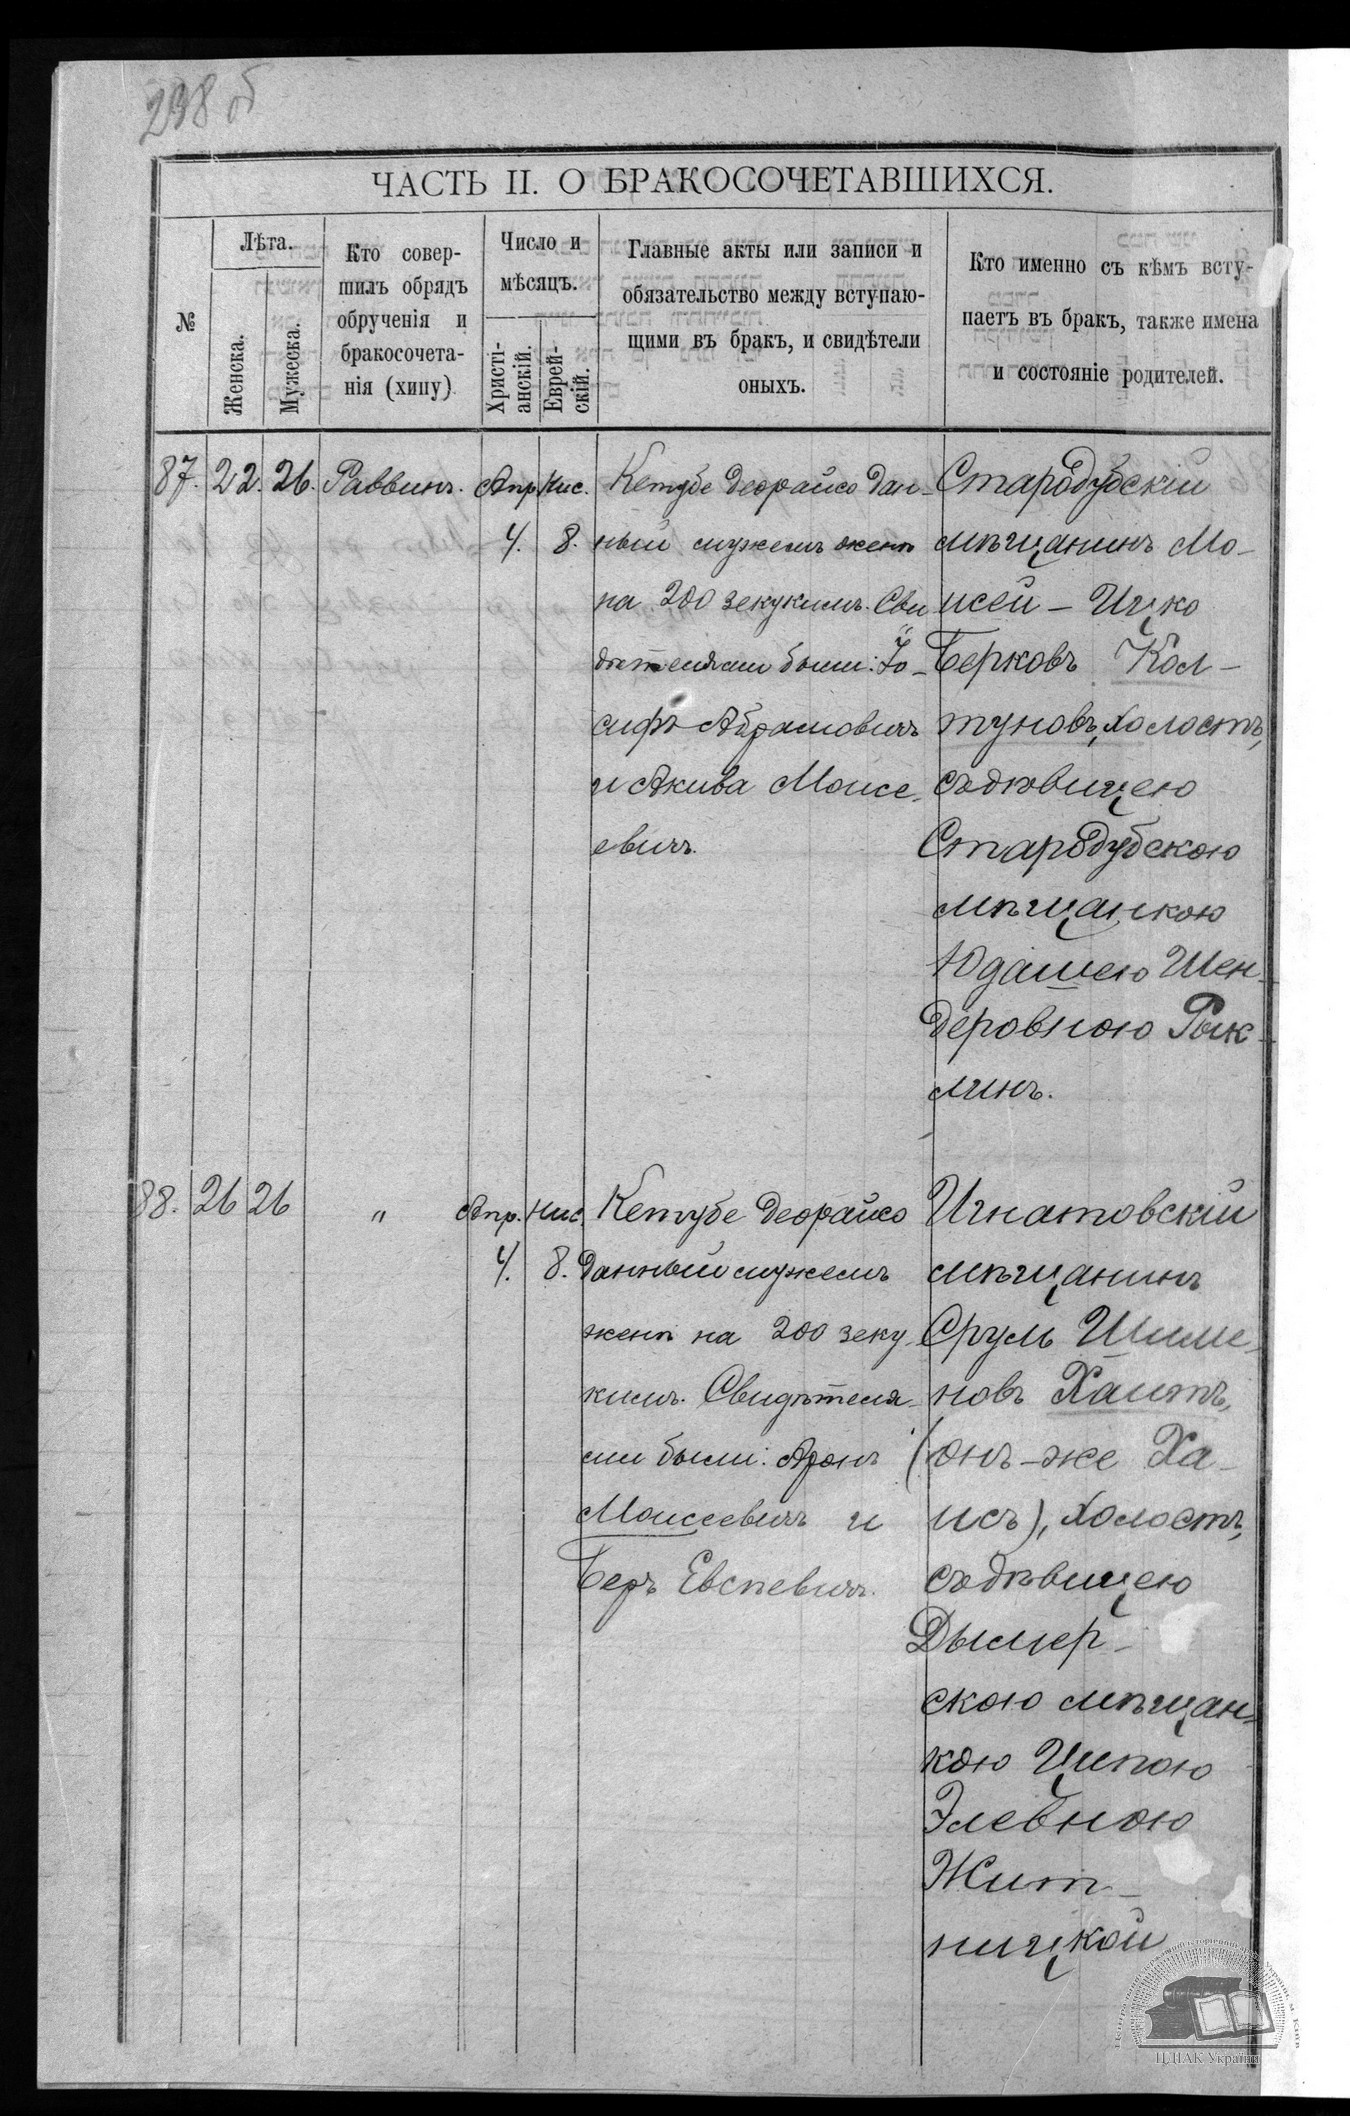 238 об
ЧАСТЬ II. О БРАКОСОЧЕТАВШИХСЯ.
№
Лѣта.
Женска.
Мужеска.
Кто совер-
шилъ обрядъ
обрученія и
бракосочета-
нія (хипу)
Число и
мѣсяцъ.
Христі-
анскій.
Еврей-
скій.
Главные акты или записи и
обязательство между вступаю-
щими въ бракъ, и свидѣтели
оныхъ.
Кто именно съ кѣмъ всту-
паетъ въ бракъ, также имена
и состояніе родителей.
87. 22. 26. Раввинъ. Апр. Нис.
4. 8.
Кетубе деорайсо дан-
ный мужемъ женѣ
на 200 зекукимъ. Сви
дѣтелями были: Іо-
сифъ Абрамовичъ
и Акива Моисе-
евичъ.
Стародубскій
мѣщанинъ Мо-
исей - Ицко
Берковъ Кол-
туновъ, холостъ,
съ дѣвицею
Стародубскою
мѣщанкою
Юдашею Шен-
деровною Рык-
линъ.
88. 26 26 " Апр. Нис.
4. 8.
Кетубе деорайсо
данный мужемъ
женѣ на 200 зеку-
кимъ. Свидѣтеля-
ми были: Аронъ
Моисеевичъ и
Беръ Евсѣевичъ.
Игнатовскій
мѣщанинъ
Сруль Шиме-
новъ Хаитъ,
(онъ-же Ха-
исъ), холостъ,
съ дѣвицею
Дымер-
скою мѣщан-
кою Ципою
Элевною
Жит-
ницкой
ЦДІАК України